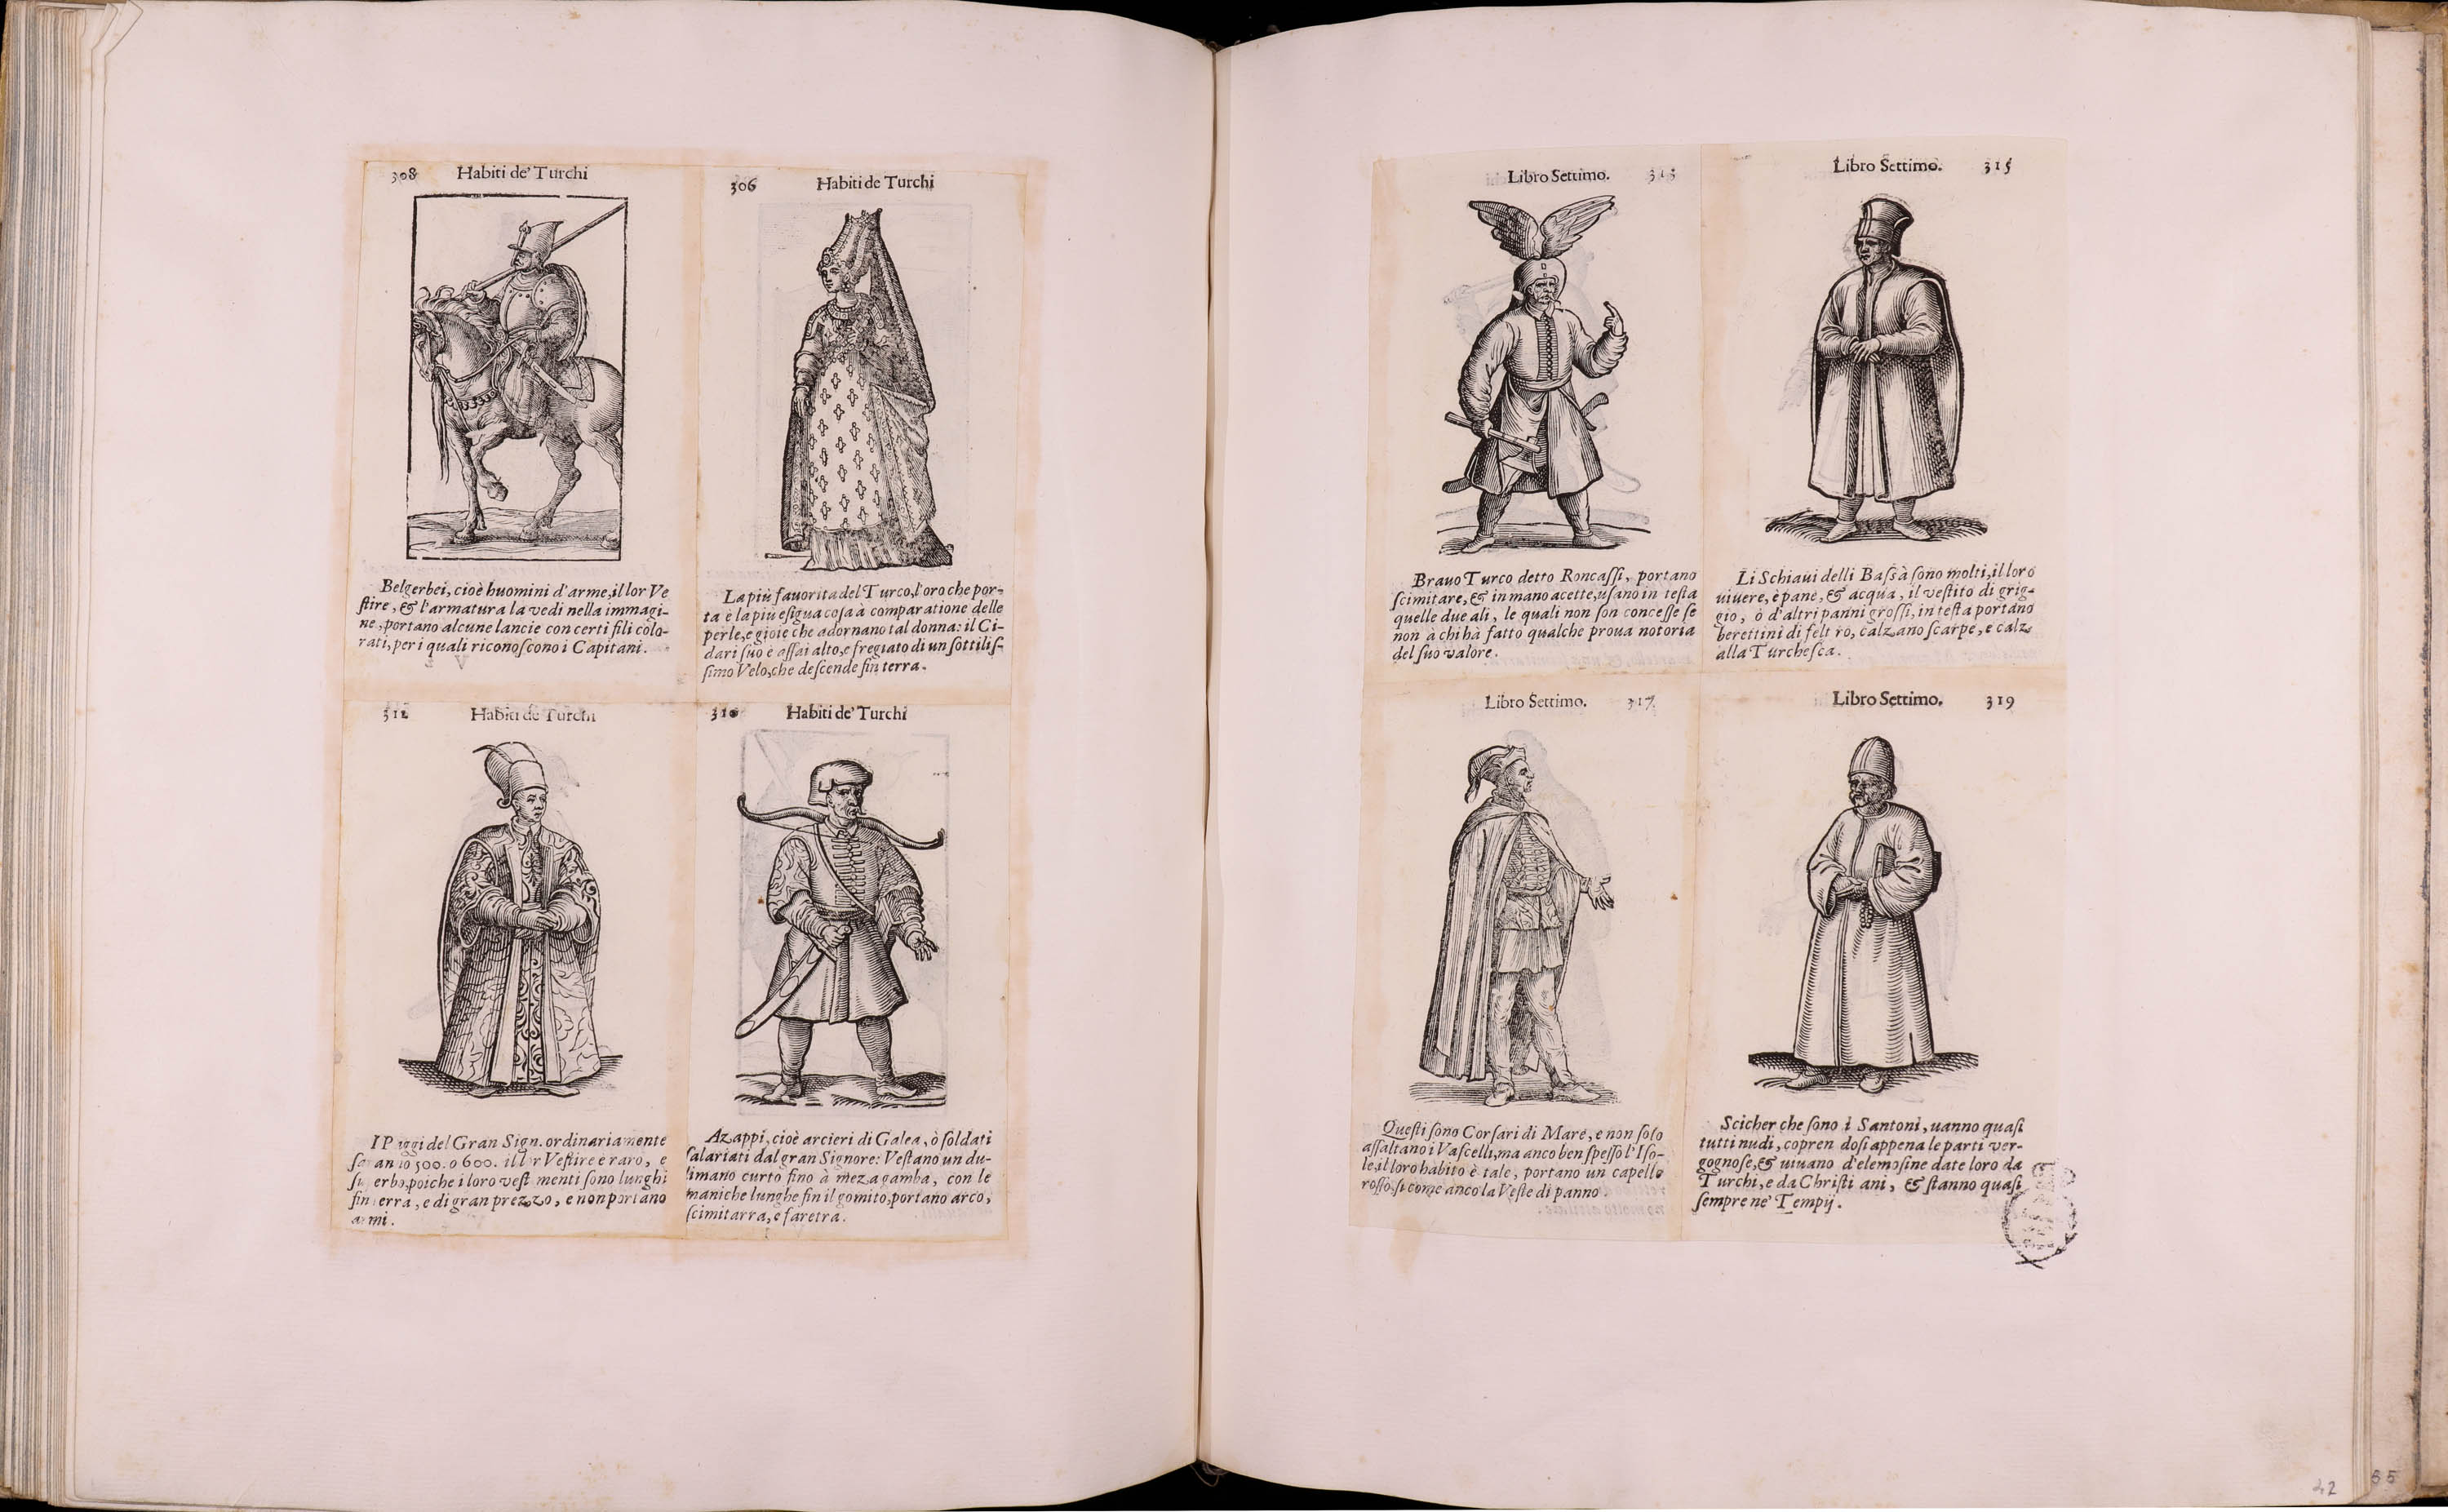 308 Habiti de' Turchi
Belgerbei, cioè huomini d'arme, il lor Ve
ſtire, & l'armatura la vedi nella immagi-
ne, portano alcune lancie con certi fili colo-
rati, per i quali riconoſcono i Capitani.
306 Habiti de Turchi
La più fauorita del Turco, l'oro che por-
ta è la più eſigua coſa à comparatione delle
perle, e gioie che adornano tal donna: il Ci-
dari ſuo è aſſai alto, e fregiato di un ſottiliſ-
ſimo Velo, che deſcende fin terra.
312 Habiti de Turchi
I P ggi del Gran Sign. ordinariamente
ſaranno 500. o 600. il lor Veſtire è raro, e
ſu erbo, poiche i loro veſt menti ſono lunghi
fin terra, e di gran prezzo, e non portano
armi.
310 Habiti de' Turchi
Azappi, cioè arcieri di Galea, ò ſoldati
ſalariati dal gran Signore: Veſtano un du-
limano curto fino à meza gamba, con le
maniche lunghe fin il gomito, portano arco,
ſcimitarra, e faretra.
Libro Settimo. 313
Brauo Turco detto Roncaſſi, portano
ſcimitare, & in mano acette, uſano in teſta
quelle due ali, le quali non ſon conceſſe ſe
non à chi hà fatto qualche proua notoria
del ſuo valore.
Libro Settimo. 315
Li Schiaui delli Baſsà ſono molti, il loro
uiuere, è pane, & acqua, il veſtito di grig-
gio, ò d'altri panni groſſi, in teſta portano
berettini di felt ro, calzano ſcarpe, e calz
alla Turcheſca.
Libro Settimo. 317
Queſti ſono Corſari di Mare, e non ſolo
aſſaltano i Vaſcelli, ma anco ben ſpeſſo l'Iſo-
le, il loro habito è tale, portano un capello
roſſo, ſi come anco la Veſte di panno.
Libro Settimo. 319
Scicher che ſono i Santoni, uanno quaſi
tutti nudi, copren doſi appena le parti ver-
gognoſe, & uiuano d'elemoſine date loro da
Turchi, e da Chriſti ani, & ſtanno quaſi
ſempre ne' Tempij.
42
35